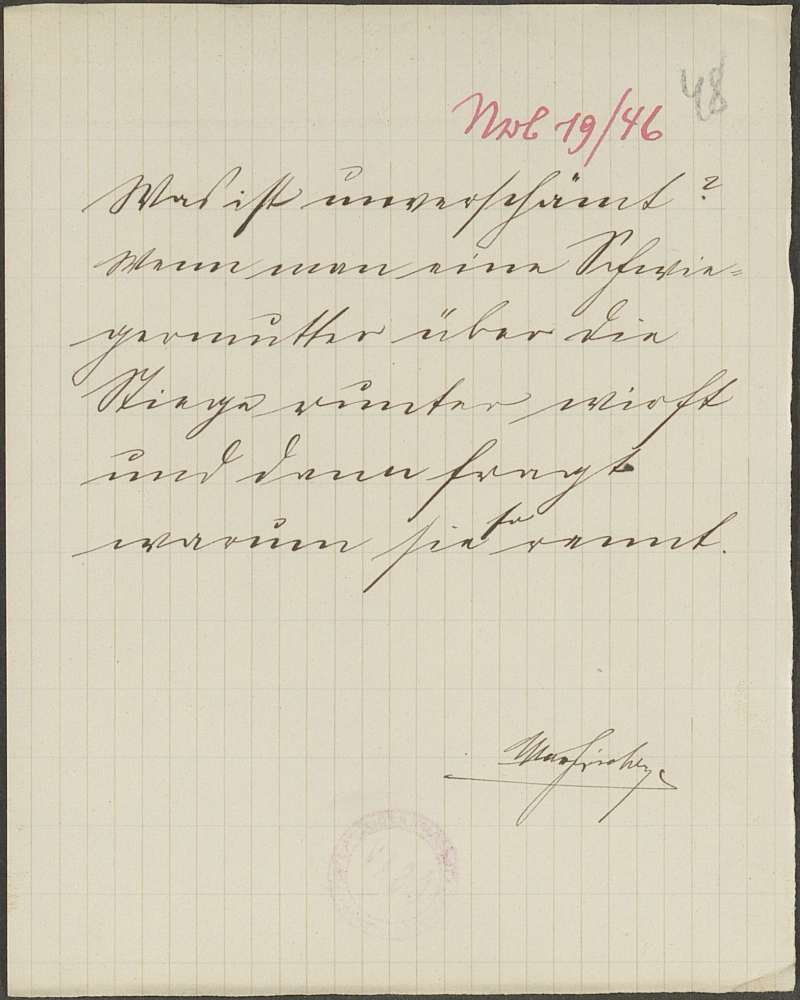 48
Nrl 19/46
Was ist unverschämt?
Wenn man eine Schwie=
germutter über die
Stiege runter wirft
und dann fragt
warum sie so rennt.